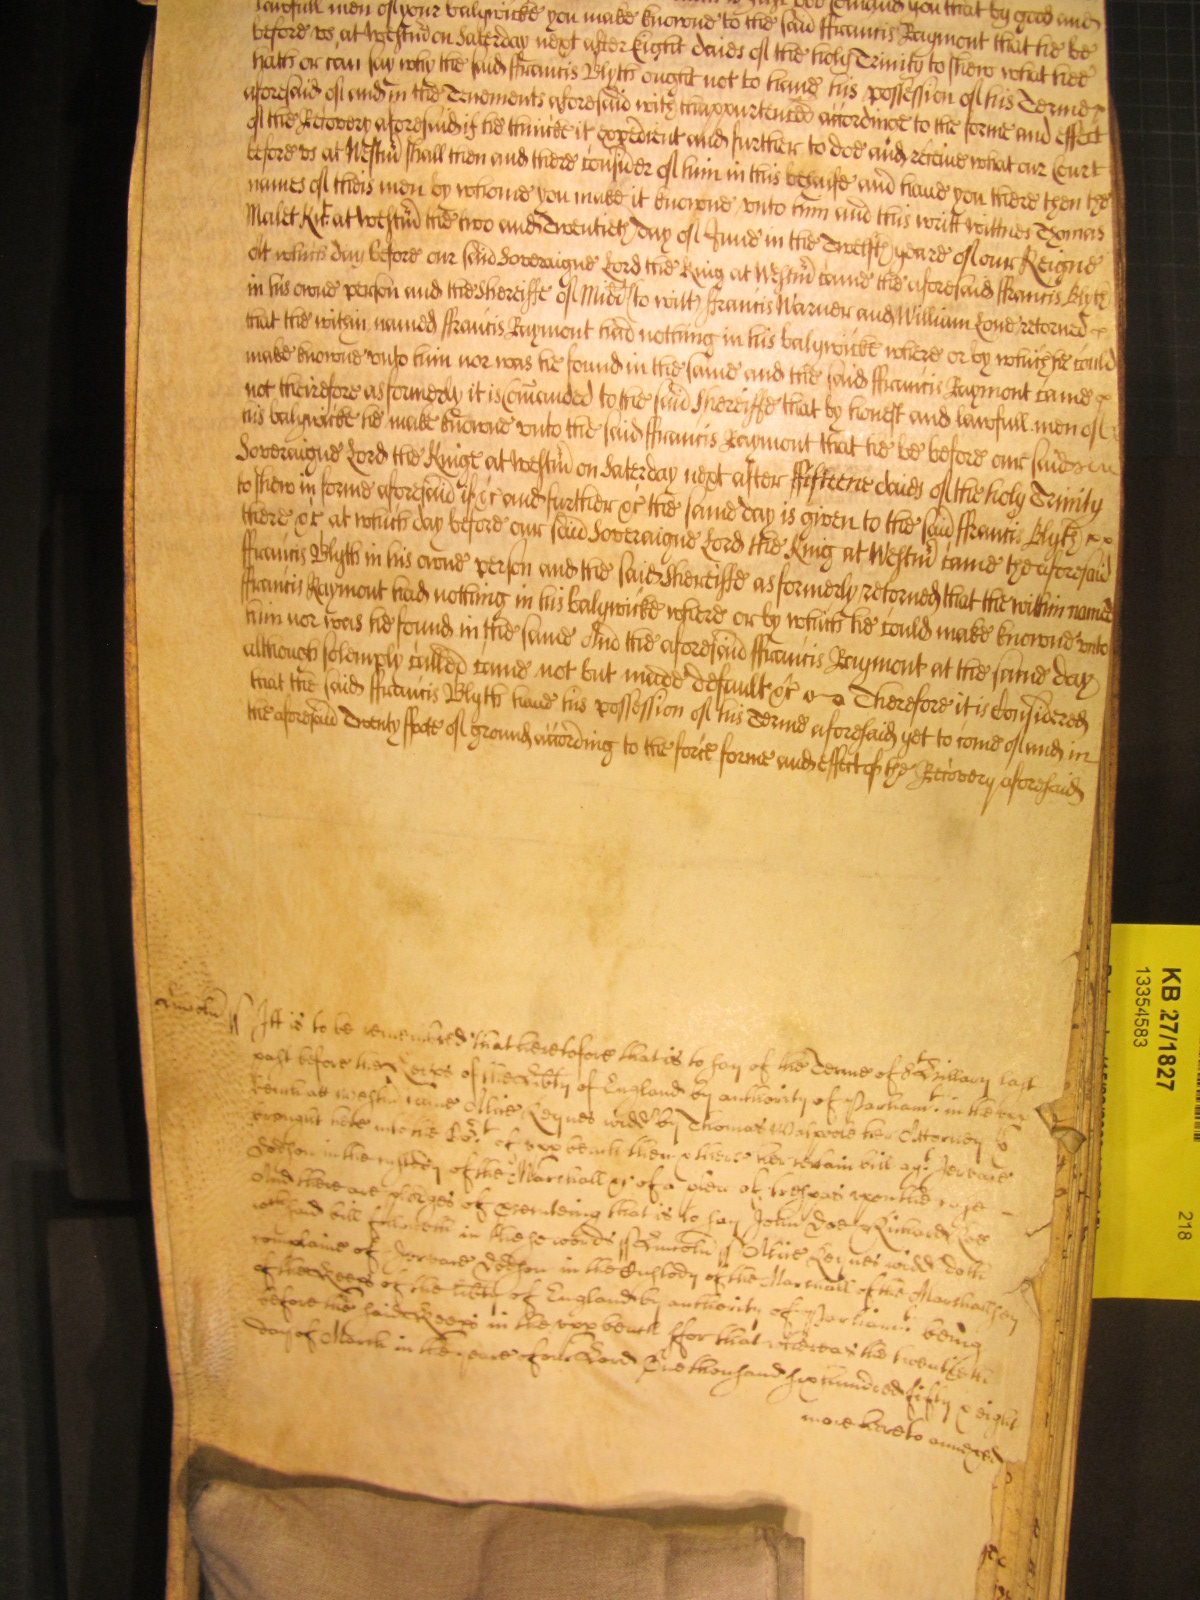 lawfull men of your balywicke you make knowne to the said ffrancis Raymont that he be
before vs at Westm̃ on Saterday next after Eight daies of the holy Trinity to shew what hee
hath or can say why the said ffrancis Blyth ought not to haue his possession of his Terme
aforesaid of and in the Tenements aforesaid with thappurtencẽs accordinge to the forme and effect
of the Recovery aforesaid if he thincke it expedient and further to doe and receive what our Court
before vs at Westm̃ shall then and there consider of him in this behalfe and haue you there then the
names of theis men by whome you make it knowne vnto him and this writt wittnes Thomas
Malet Kt̃ at Westm̃ the two and Twentieth day of June in the Twelfth yeare of our Reigne
At which day before our said Soveraigne Lord the King at Westm̃ came the aforesaid ffrancis Blyth
in his owne person and the Shereiffe of Midd̃ to witt ffrancis Warner and William Loue retorned
that the within named ffrancis Raymont had nothing in his balywicke where or by which he could
make knowne vnto him nor was he found in the same and the said ffrancis Raymont came
not theirefore as formerly it is Com̃anded to the said Shereiffe that by honest and lawfull men of
his balywicke he make knowne vnto the said ffrancis Raymont that he be before our said
Soveraigne Lord the Kinge at Westm̃ on Saterday next after ffifteene daies of the holy Trinity
to shew in forme aforesaid if &c and further &c the same day is given to the said ffrancis Blyth
there &c at which day before our said Soveraigne Lord the King at Westm̃ came the aforesaid
ffrancis Blyth in his owne person and the said Shereiffe as formerly retorned that the within named
ffrancis Raymont had nothing in his balywicke where or by which he could make knowne vnto
him nor was he found in the same And the aforesaid ffrancis Raymont at the same day
although solemply called came not but made default &c Therefore it is Considered
that the said ffrancis Blyth haue his possession of his Terme aforesaid yet to come of and in
the aforesaid Twenty ffoote of ground according to the force forme and effect of the Recovery aforesaid
Lincoln ss Itt is to be remembred that heretofore that is to say of the Terme of St Hillary last
past before the Keeps of the libty of England by authority of Parliamt in the vpp
bench att Westm̃ came Alice Keynes widd by Thomas Walpole her Attorney &
brought here into the Cort of vpp bench then & there her certain bill agt Jervase
Dodson in the custody of the Marshall &c of a plea of trespas vpon the case
And there are pledges of prosecuteing that is to say John Doe & Richard Roe
which said bill followeth in these words ss Lincoln ss Alice Keynes widd doth
complaine of Jervase Dodson in the Custody of the Marshall of the Marshallsey
of the Keeps of the libty of England by authority of Parliamt being
before the said Keeps in the vpp bench ffor that whereas the twentieth
day of March in the yeare of our Lord One thousand six hundred fifty & eight
more hereto annexed
KB 27/1827
13354583
218